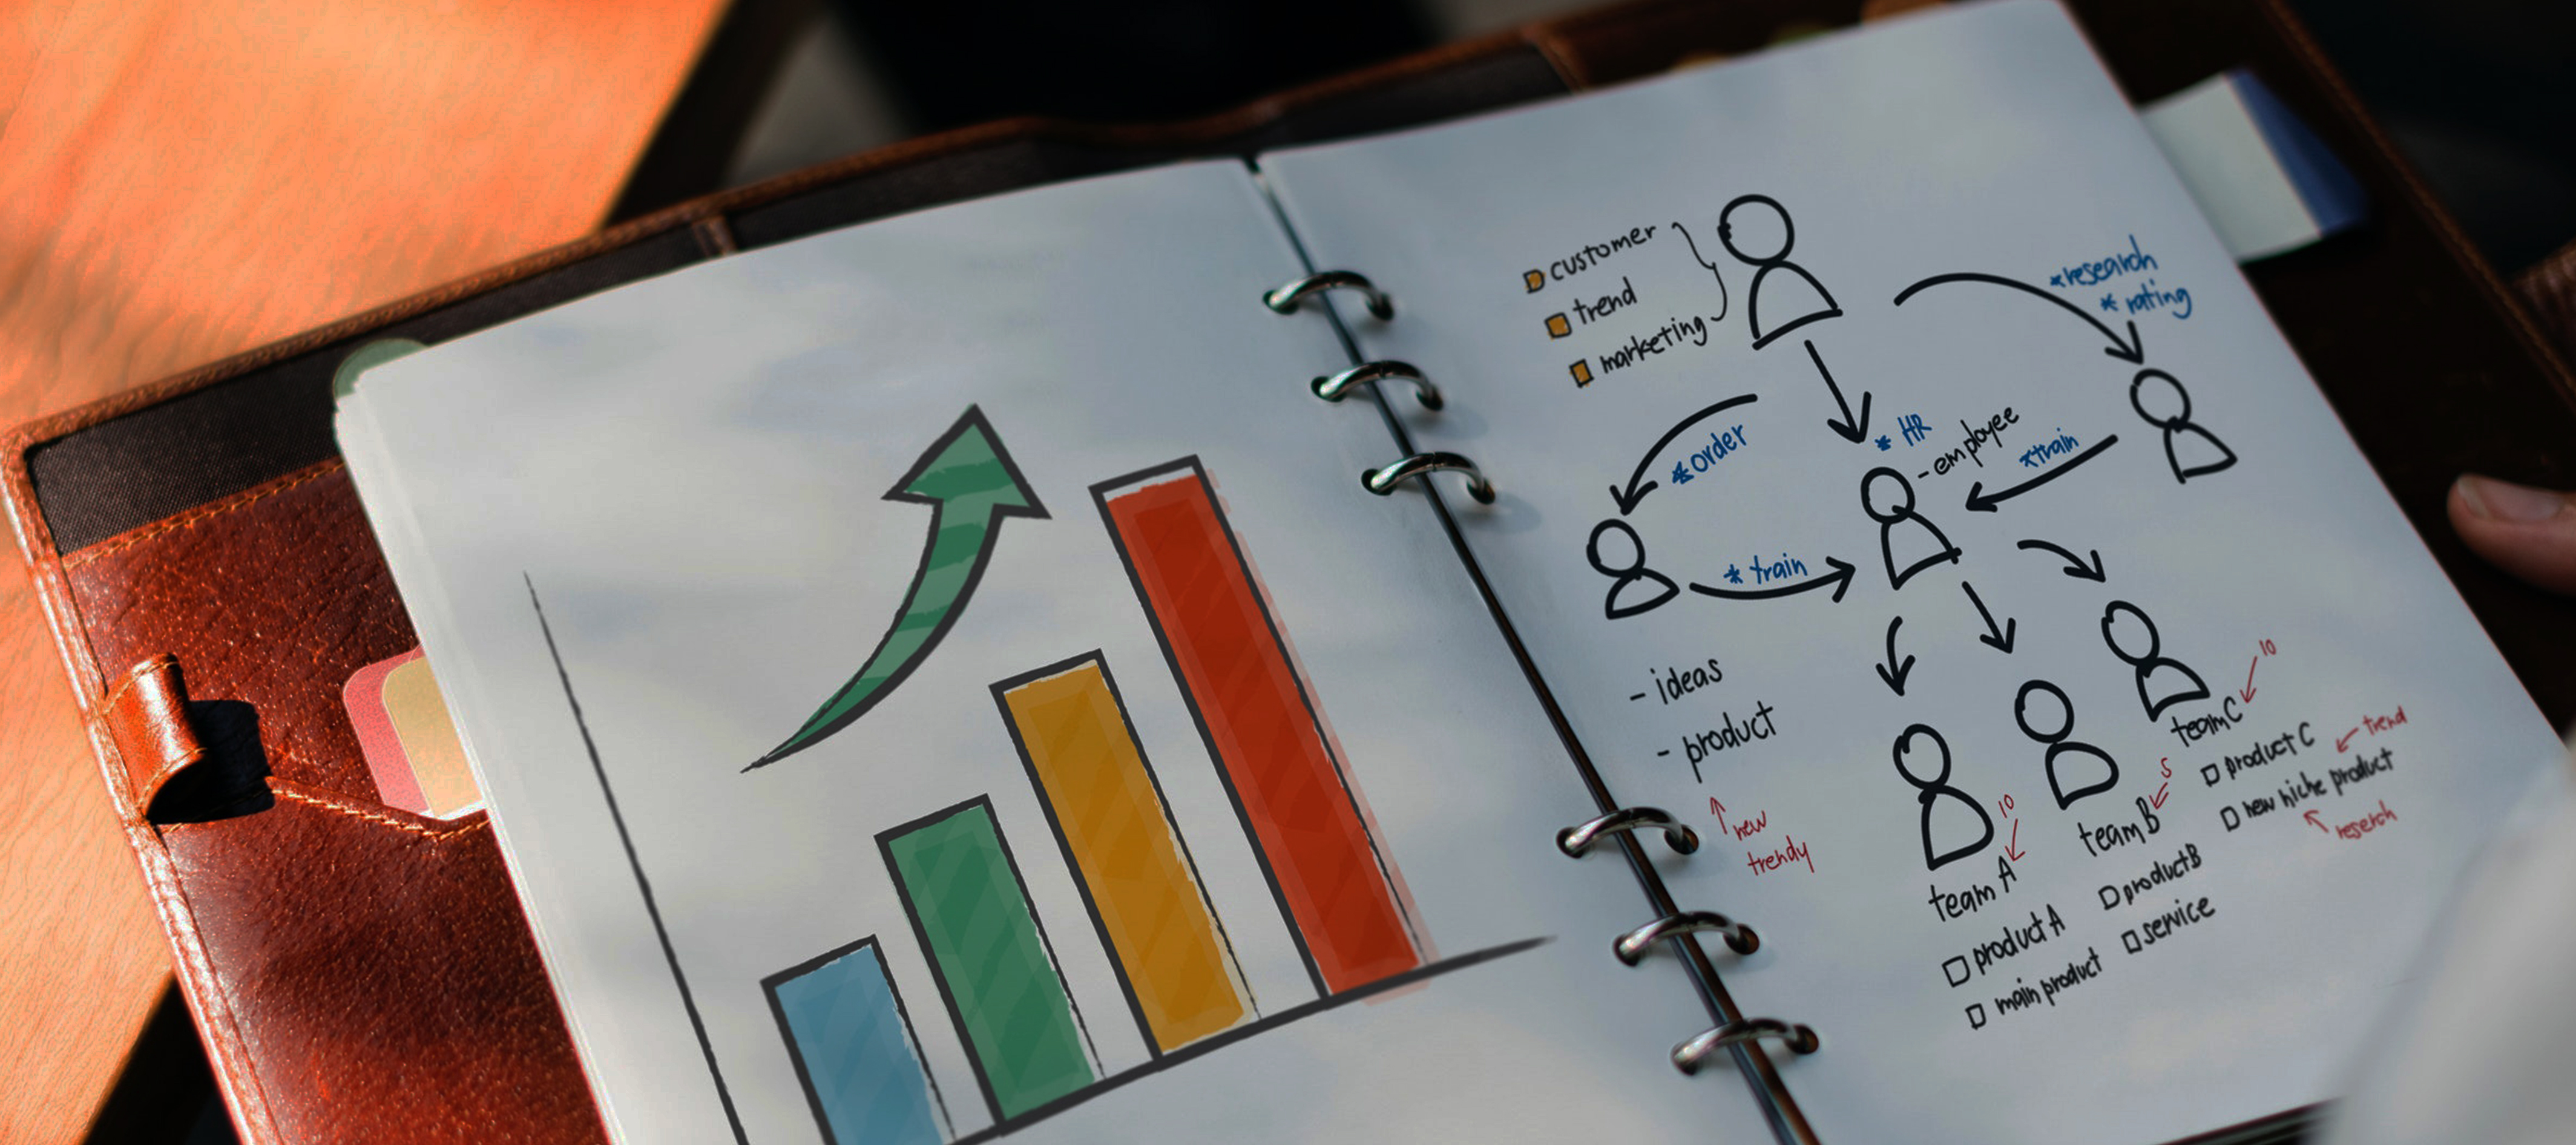 customer
trend
marketing
*research
* rating
*order
* HR
- employee
*train
* train
- ideas
- product
new
trendy
10
team A
product A
main product
5
team B
product B
service
10
team C
product C
trend
new niche product
reserch